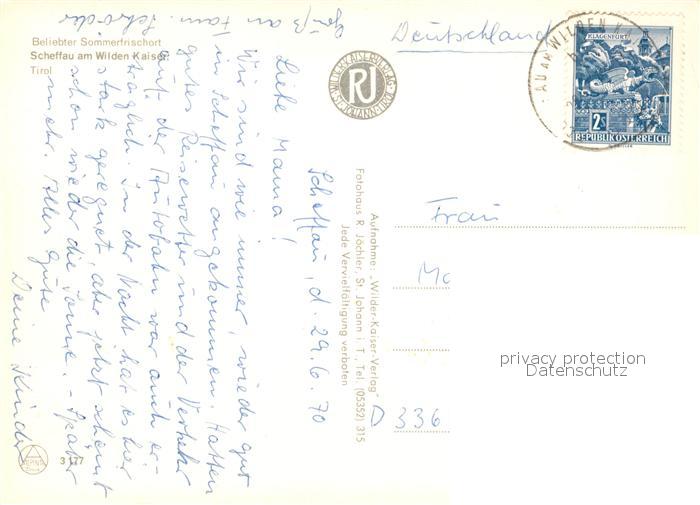 Beliebter Sommerfrischort
Scheffau am Wilden Kaiser
Tirol
WILDER-KAISER-VERLAG
RJ
ST. JOHANN/TIROL
Deutschland
KLAGENFURT
2 S
REPUBLIK ÖSTERREICH
AU AM WILDEN K
Scheffau, d. 29.6.70
Liebe Mama!
Wir sind wie immer, wieder gut
in Scheffau angekommen. Hatten
gutes Reisewetter und der Verkehr
auf der Autobahn war auch er-
träglich. In der Nacht hat es hier
stark geregnet, aber jetzt scheint
schon wieder die Sonne. - Später
mehr. Alles Gute
Deine Kinder
Grüß an Fam. Schröder
Aufnahme: „Wilder-Kaiser-Verlag"
Fotohaus R. Jöchler, St. Johann i. T., Tel. (05352) 315
Jede Vervielfältigung verboten
Frau
Ma
D 336
privacy protection
Datenschutz
3177